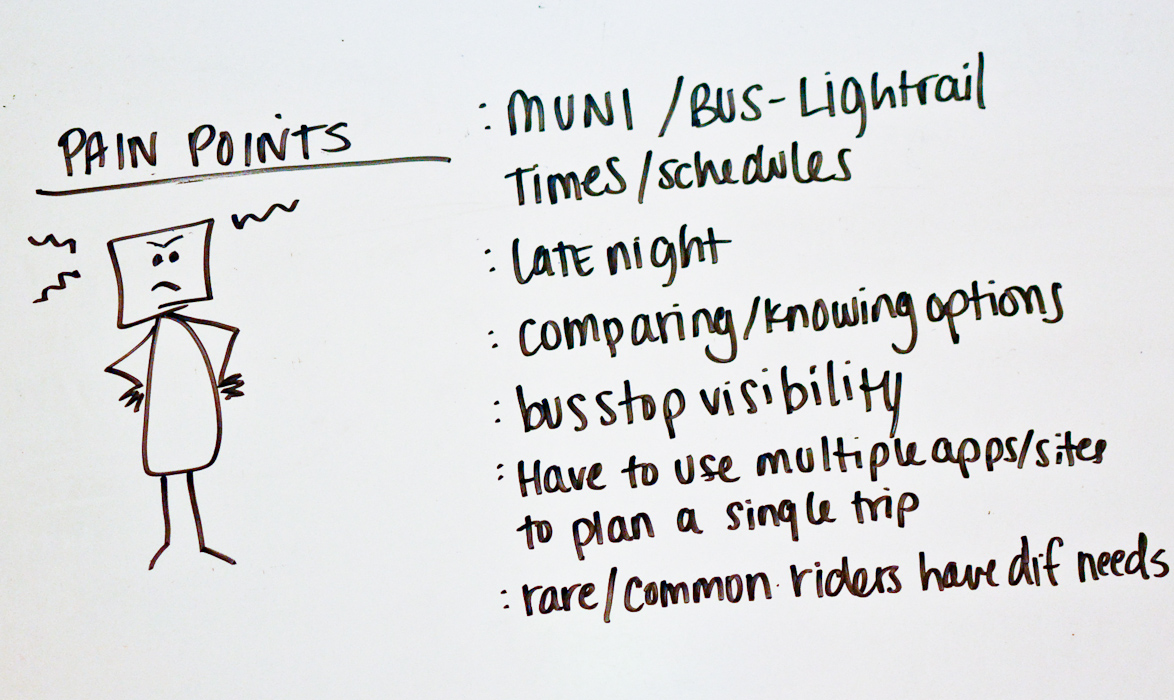 PAIN POINTS
: MUNI / BUS - Lightrail
Times/schedules
: LATE night
: comparing/knowing options
: bus stop visibility
: Have to use multiple apps/sites
to plan a single trip
: rare/common riders have dif needs